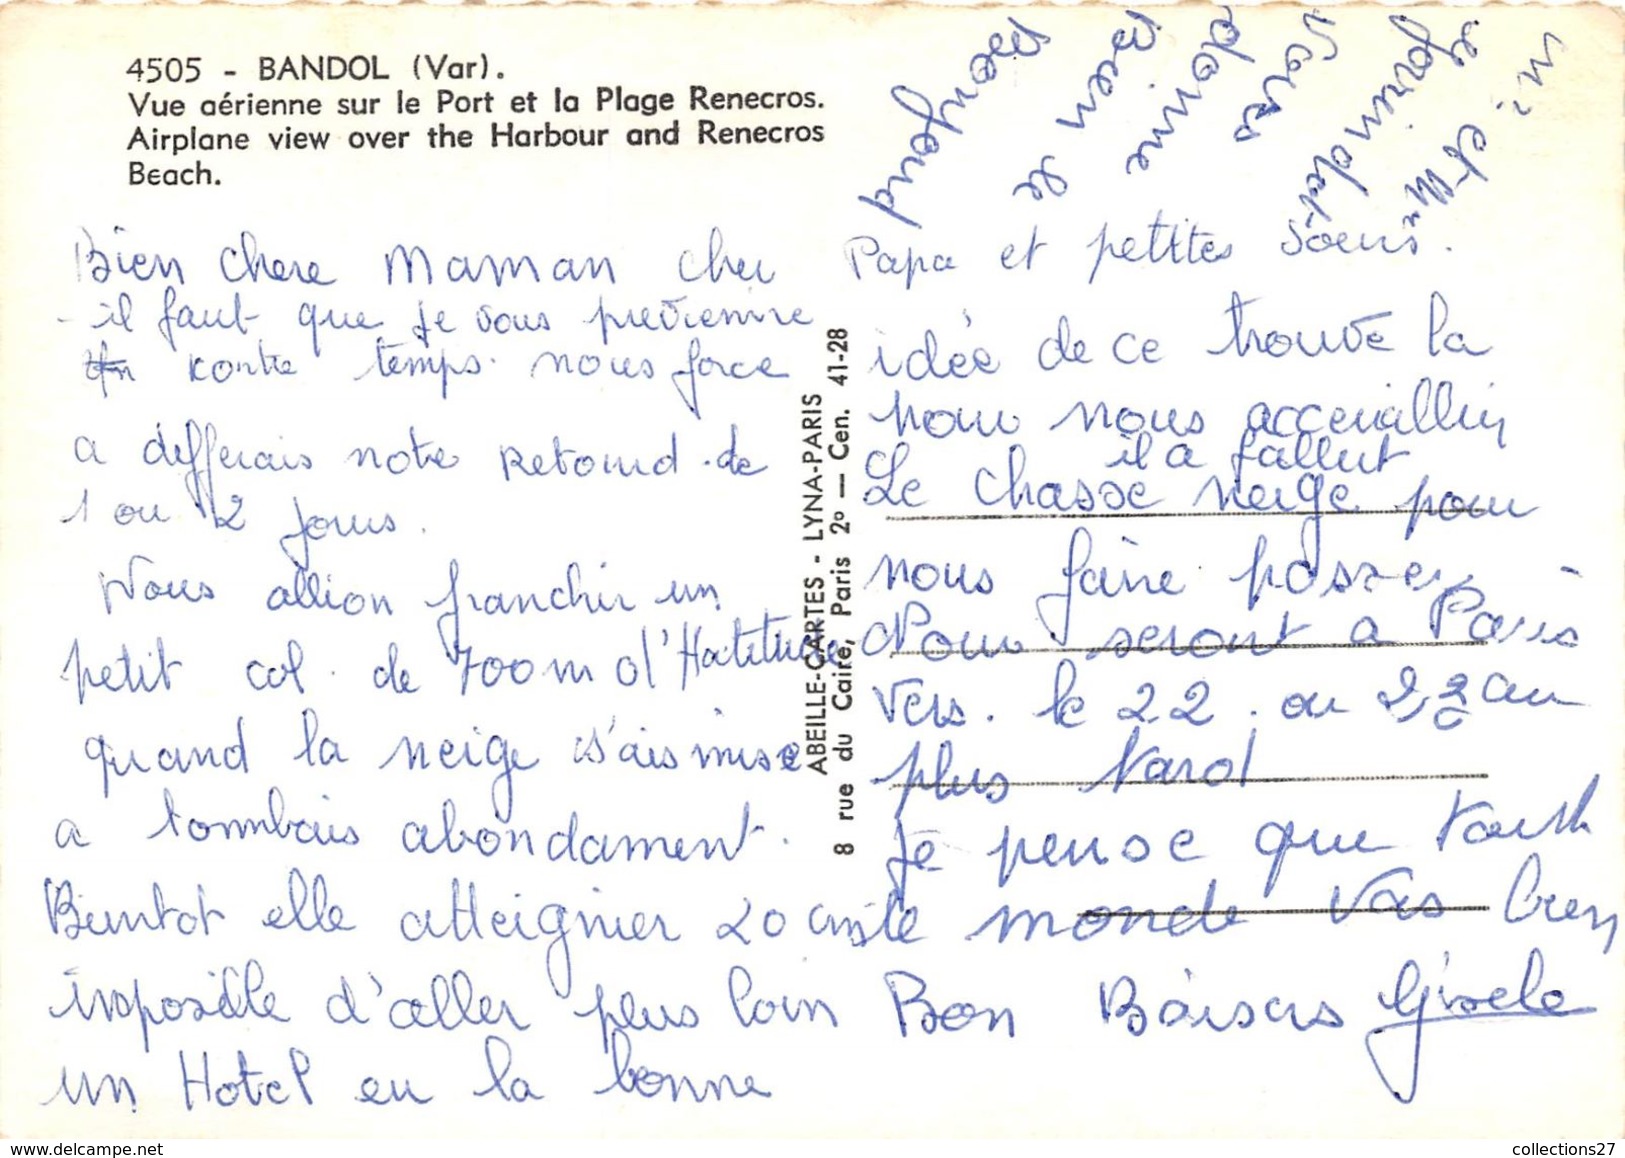 4505 - BANDOL (Var).
Vue aérienne sur le Port et la Plage Renecros.
Airplane view over the Harbour and Renecros
Beach.
Bien chere Maman cher
il faut que je vous previenne
kontre temps nous force
a defferais notre Retourd de
1 ou 2 jours.
Nous allion franchir un
petit col de 700m d'Hatitude
quand la neige s'ais mise
a tommbais abondament.
Bientot elle atteignier 20 cms
imposible d'aller plus loin
un Hotel eu la bonne
ABEILLE-CARTES - LYNA-PARIS
8 rue du Caire, Paris 2º — Cen. 41-28
Papa et petites soeurs.
idée de ce trouve la
pour nous acceuillir
il a fallut
Le chasse neige pour
nous faire passer
Nour seront a Paris
vers le 22 ou 23 au
plus tard
Je pense que tout
le monde vas bien
Bon Baisers Gisele
bien le
donne
collections27